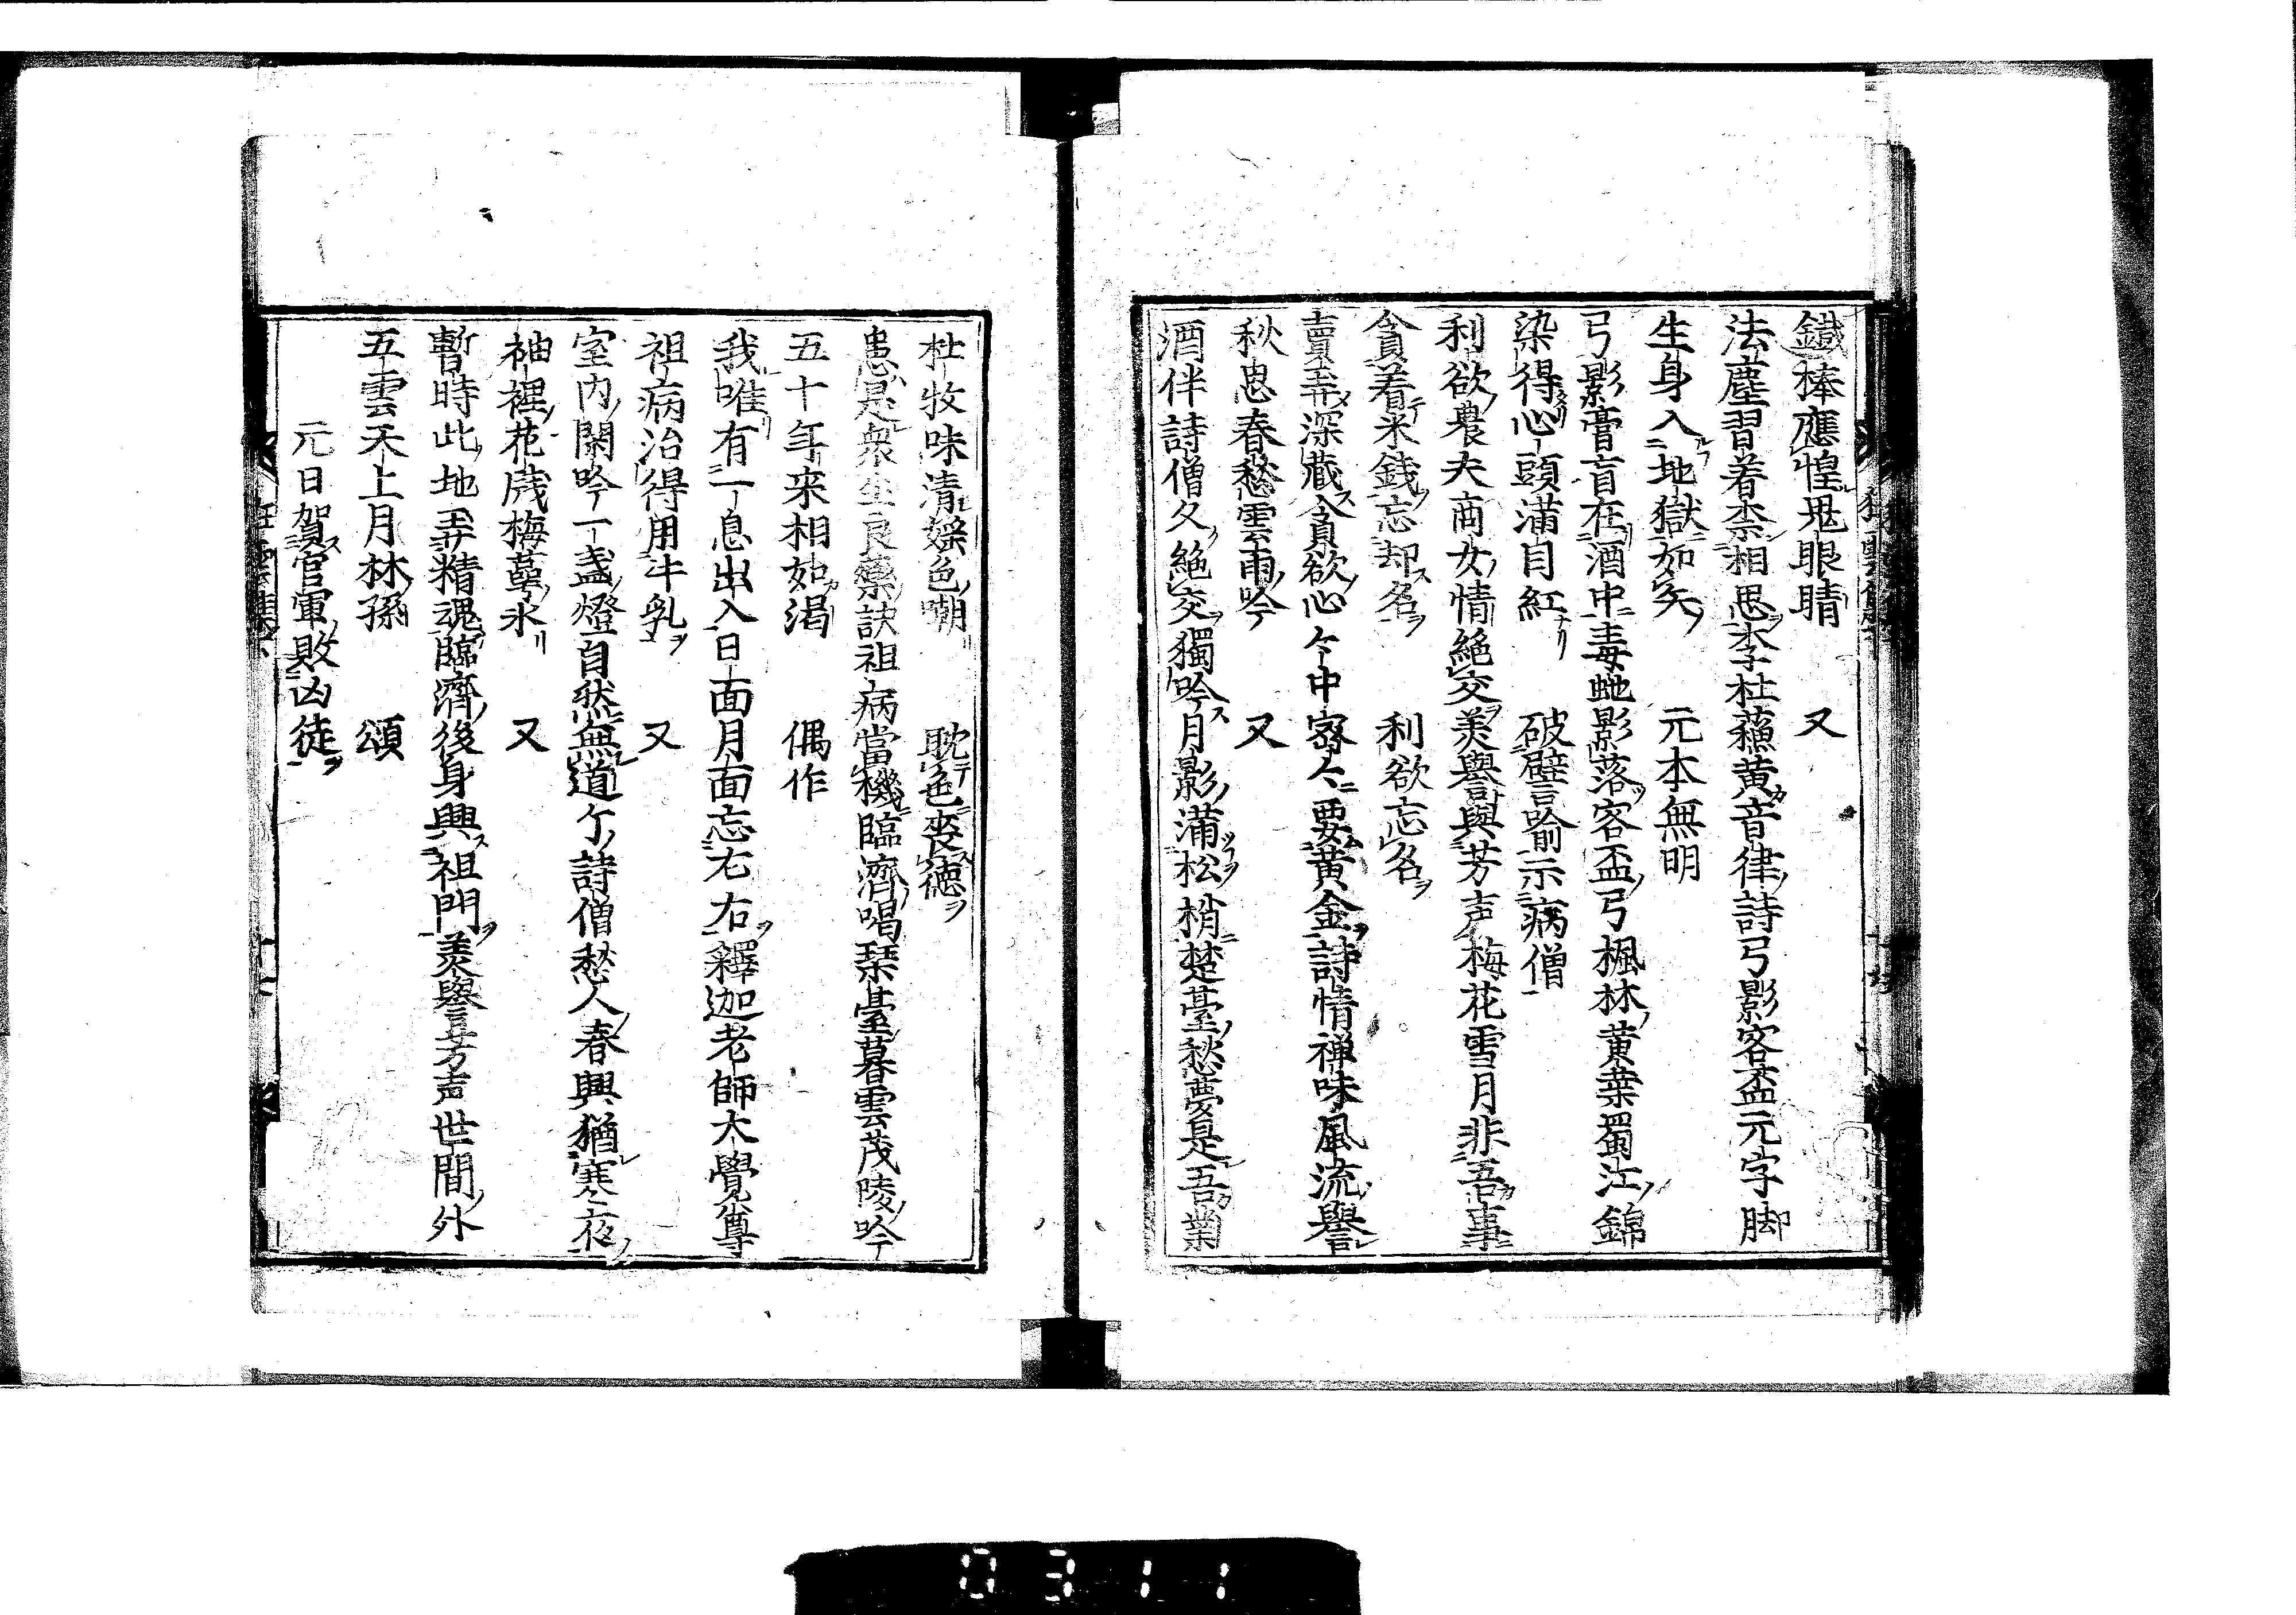 鐵棒應惶鬼眼睛　　又
法塵習着柰相思李杜蘓黄音律詩弓影客盃元字脚
生身入地獄如矢　　元本無明
弓影膏肓在酒中毒虵影落客盃弓楓林黄葉蜀江錦
染得心頭滿目紅　　破譬喻示病僧
利欲農夫商女情絶交美譽與芳声梅花雪月非吾事
貪着米錢忘却名　　利欲忘名
賣弄深藏貪欲心々中密々要黄金詩情禅味風流譽
秋思春愁雲雨吟　　又
酒伴詩僧久絶交獨吟月影滿松梢楚臺愁夢是吾業
杜牧味清婬色嘲　　耽色喪德
患是衆生良藥訣祖病當機臨濟喝琴臺暮雲茂陵吟
五十年来相如渇　　偶作
我唯有一息出入日面月面忘左右釋迦老師大覺尊
祖病治得用牛乳　　又
室内閑吟一盞燈自然無道个詩僧愁人春興猶寒夜
袖裡花戔梅萼氷　　又
暫時此地弄精魂臨濟後身興祖門美譽芳声世間外
五雲天上月林孫　　頌
元日賀官軍敗凶徒
0311